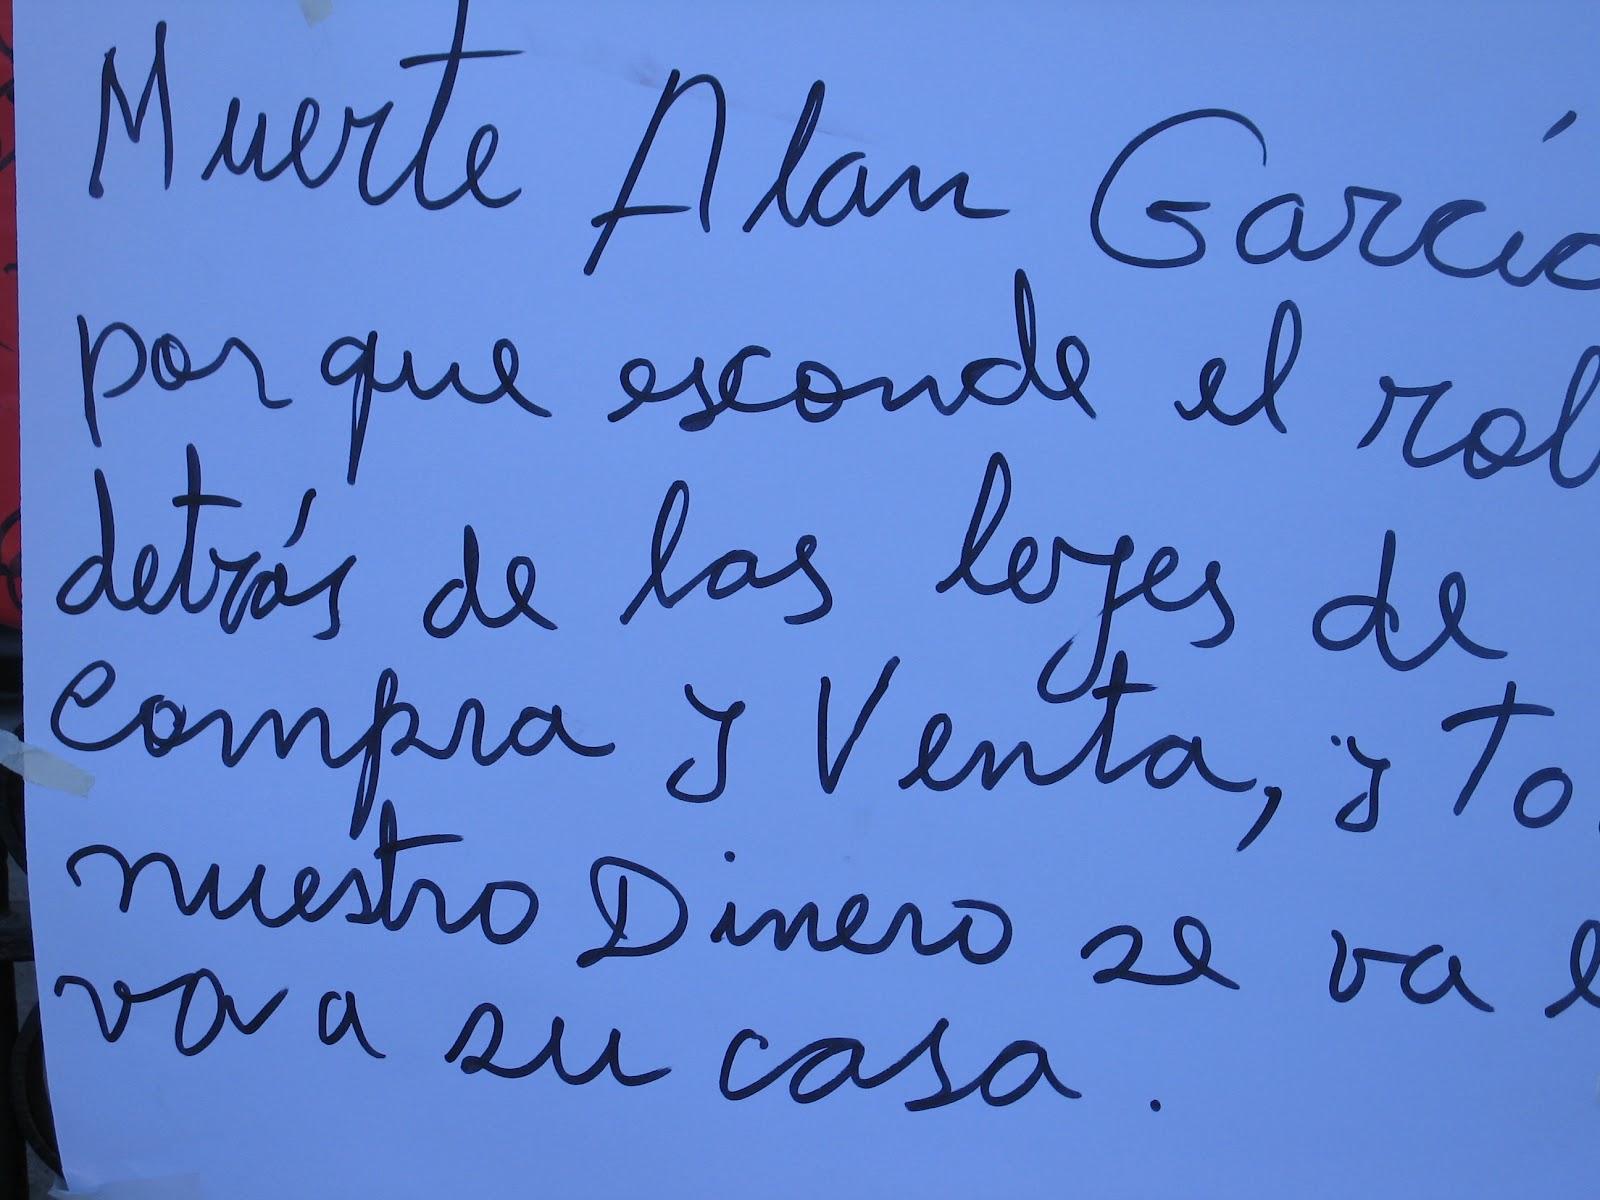 Muerte Alan García
por que esconde el
detrás de las leyes de
compra y Venta, y
nuestro Dinero se va
va a su casa.